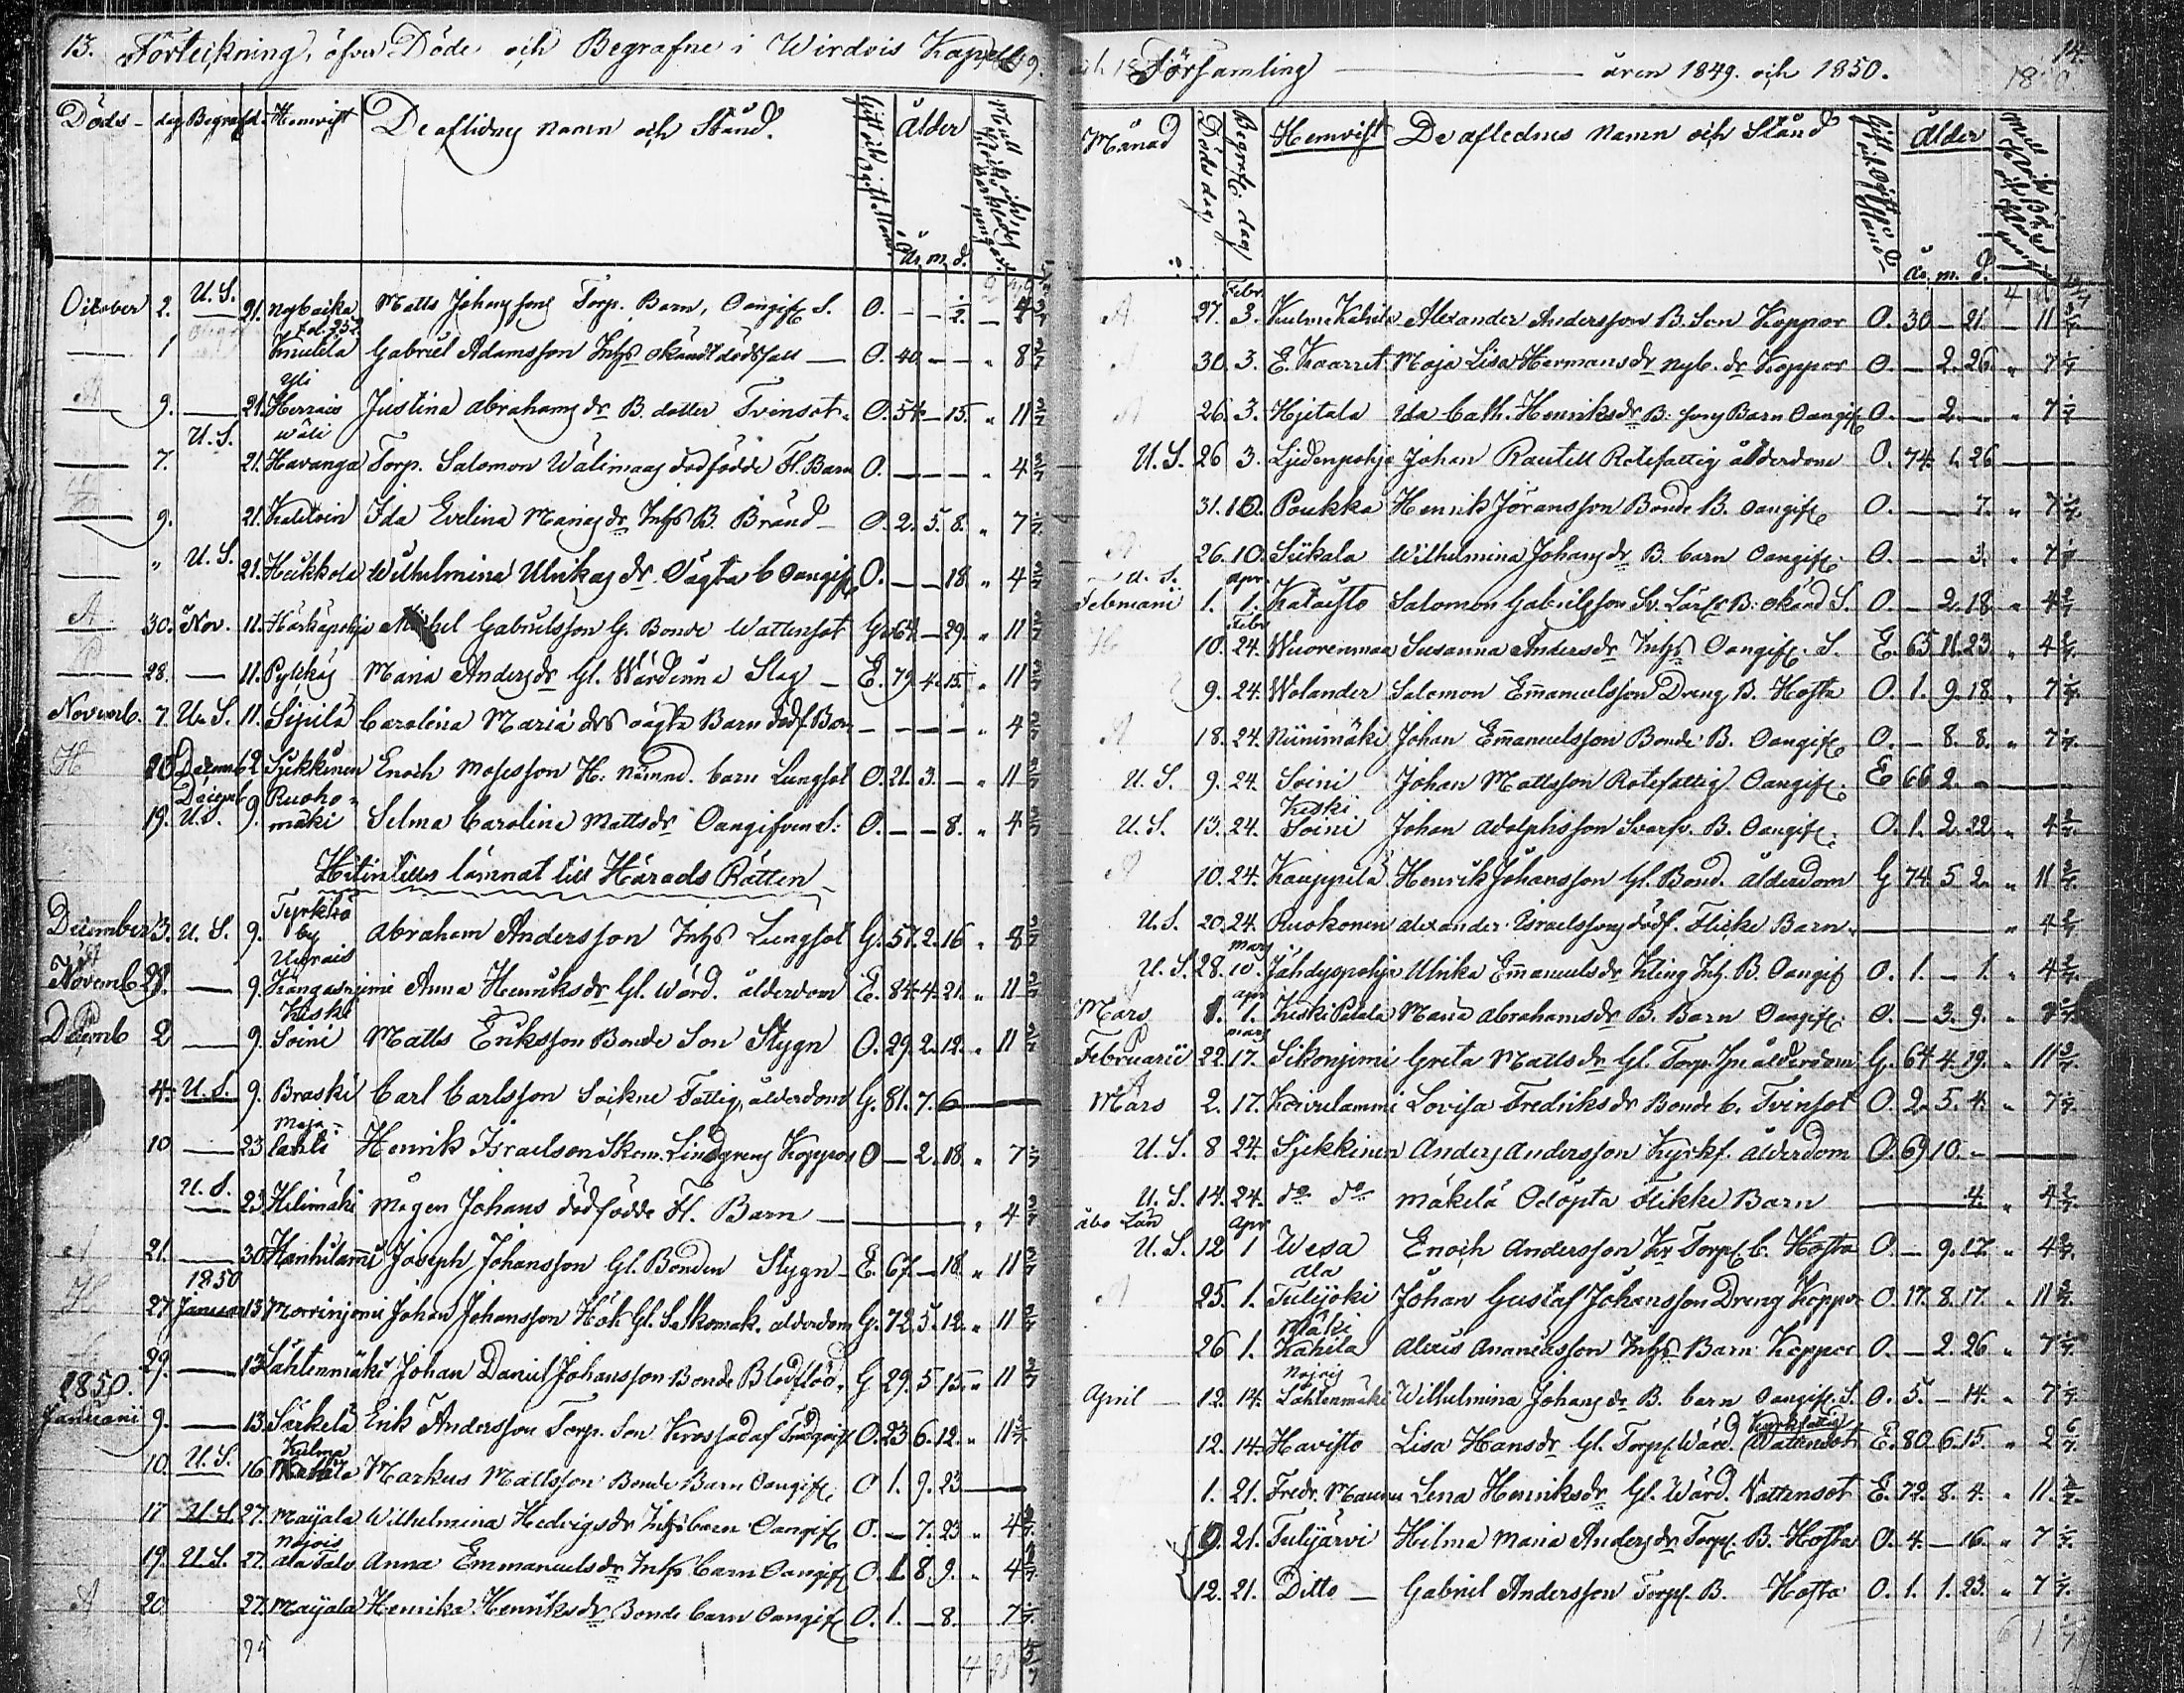 13. Förteckning, öfver Döde och Begrafne i Wirdois Kapell
Döds- dag Begrafd. Hemvist De aflidnes namn och Stånd. Gift eller ogift Stånd Ålder
år. m. d.
October 2. U. S. 21. Nybacka Matts Johanssons Torp. Barn, Oangif. S. O. — — ½ — 4 2/7
fol. 252
— 1 Knulila Gabriel Adamsson Inhs okändt dödssätt — O. 40. — — " 8 2/7
Yli
A 9. — 21. Herrais Justina Abrahams dr B. dotter Tvinsot. O. 54. — 15. " 11 3/7
U. S. wäli
— 7. 21. Havanga Torp. Salomon Wälimaas dödfödde Fl. Barn O. — — — " 4 2/7
— 9. 21. Kaletoin Ida Evelina Marias dr Inhs B. Bränd — O. 2. 5. 8. " 7 1/7
— " U. S. 21. Heikkola Wilhelmina Ulrikas dr Oägta b Oangif. O. — — 18. " 4 2/7
A 30. Nov. 11. Härkäpohja Mikel Gabrielsson G. Bonde Wattensot G. 64. — 29. " 11 3/7
28. — 11. Pylkäs Maria Anders dr Gl. Wärdinna Slag — E. 79. 4. 15. " 11 3/7
Novemb. 7. U. S. 11. Sipilä Carolina Mariæ drs oägta Barn dödf. Barn — — — — " 4 2/7
H 20 Decemb 2. Sjekkinen Enoch Mosesson H. Nämnd. barn Lungsot O. 21. 3. — " 11 3/7
Decemb Ruoho-
19. U. S. 9. mäki Selma Carolina Mattsdr Oangifven S. O. — — 8. " 4 2/7
Hitintills lämnat till Härads Rätten
Tyrkkö
December 3. U. S. 9. by Abraham Andersson Inhs Lungsot G. 57. 2. 16 " 8 2/7
Uurais
Novemb 29. — 9. Kangasniemi Anna Henriksdr Gl. Wärd. ålderdom E. 84. 4. 21. " 11 3/7
Keski
Decemb 2 — 9. Soini Matts Eriksson Bonde Son Stygn O. 29. 2. 12. " 11 3/7
4. U. S. 9. Braski Carl Carlsson Sockne Fattig, ålderdom G. 81. 7. 6 —
Maja-
10 — 23 lahti Henrik Israelson Skom. Lindgrens Koppor O — 2. 18. " 7 1/7
U. S.
— 23. Kilimäki Mågen Johans dödfödde Fl. Barn — — " 4 2/7
A 21. — 30 Hanhilammi Joseph Johansson Gl. Bonden Stygn — E. 67. — 18. " 11 3/7
1850
H 27. Januar 13 Morrinjoni Johan Johansson Höh Gl. Salkomak. ålderdom G. 72. 5. 12. " 11 3/7
29. — 13 Lähtenmäki Johan Daniel Johansson Bonde Blodflöd. G 29. 5. 15. " 11 3/7
1850.
Januari 9. — 13. Särkelä Erik Andersson Torp. Son O. 23 6. 12. " 11 3/7
Kulma
10. U. S. 16. Kahila Markus Mattsson Bonde Barn Oangif. O 1. 9. 23 —
17 U. S. 27. Maijala Wilhelmina Hedvigs dr Inhs barn Oangif. O. — 7. 23 " 4 2/7
Nojois
19. U. S. 27. ala Talo Anna Emmanuels dr Inhs barn Oangif. O. 1. 8. 9. " 4 2/7
A 20 27. Maijala Henrika Henriksdr Bonde barn Oangif. O. 1. — 8. 7 1/7
14.
Församling — åren 1849. och 1850.
Månad Döds dag Begrafn. dag Hemvist De aflednes Namn och Stånd Gift och Ogift Stånd Ålder
år. m. d.
Febr.
A 27. 3. Kulma Kahila Alexander Andersson B. Son Koppor O. 30 — 21. — 11 3/7
A 30. 3. E. Kaarret. Maja Lisa Hermansdr nyb. dr Koppor O. — 2. 26. " 7 1/7
A 26. 3. Hjetala Ida Cath. Henriksdr B. sons Barn Oangif. O. — 2. — " 7 1/7
U. S. 26 3. Ljedenpohja Johan Rautell Rotefattig ålderdom O. 74. 1. 26 —
31. 10. Poukka Henrik Jöransson Bonde B. Oangif. O. — — 7. " 7 1/7
A 26. 10. Siikala Wilhelmina Johans dr B. barn Oangif. O. — — 3. " 7 1/7
U. S. Apr.
Februarii 1. 1. Kataisto Salomon Gabrielsson B. okänd S. O. — 2. 18. " 4 2/7
Febr
H 10. 24. Wuorenmaa Susanna Andersdr Inhs Oangif. S. E. 65 11. 23. " 4 2/7
9. 24. Wolander Salomon Emanuelsson Dreng B. Hosta O. 1. 9. 18. " 7 1/7
A 18. 24. Niinimäki Johan Emanuelsson Bonde B. Oangif. O. — 8. 8. " 7 1/7
U. S. 9. 24. Soini Johan Mattsson Rotefattig Oangif. E 66 2. —
Keski
U. S. 13. 24. Soini Johan Adolphsson Svarfv. B. Oangif. O. 1. 2. 22. " 4 2/7
A 10. 24. Kauppila Henrik Johansson Gl. Bond. ålderdom G 74. 5 2. " 11 3/7
U. S. 20. 24. Ruokonen Alexander Israelssons dödf. Flicke Barn. — " 4 2/7
mars
U. S. 28. 10. Jähdyspohja Ulrika Emanuels dr Kling Inh. B. Oangif O. 1. — 1. " 4 2/7
Apr
Mars 8. 1. Keski Patala Maria Abrahamsdr B. Barn Oangif. O. — 3. 9.
mars
Februarii 22. 17. Sikonjoni Greta Mattsdr Gl. Torp. ålderdom G. 64 4. 19. " 11 3/7
A
Mars 2. 17. Koivulammi Lovisa Fredriksdr Bonde b. Tvinsot O. 2. 5. 4. " 7 1/7
U. S. 8 24. Sjekkinen Anders Andersson Kyrkf. ålderdom O. 69 10. —
U. S. 14. 24. do do Mäkelä Odöpta Flikke Barn — 4. " 4 2/7
Åbo Län Apr
U. S. 12 1 Wesa Enoch Andersson Torp. b. Hosta O. — 9. 17. " 4 2/7
ala
A 25. 1. Tulijoki Johan Gustaf Johansson Dreng Koppor O. 17. 8. 17. " 11 3/7
Mäki
26 1. Kahila Alexis Ananiasson Inhs. Barn Koppor O. — 2. 26 " 7 1/7
Nojois
April — 12. 14. Lähtenmäki Wilhelmina Johans dr B. barn Oangif. S. O. 5. — 14. " 7 1/7
Kyrkfattig
12. 14. Havisto Lisa Hansdr Gl. Torp. Wärd. Wattensot E. 80. 6. 15. " 2 6/7
1. 21. Fredr. Lena Henriksdr Gl. Wärd. Wattensot E. 72. 8. 4. " 11. 3/7
9. 21. Tulijärvi Hilma Maria Anders dr Torp. B. Hosta O. 4. — 16. " 7 1/7
12. 21. Ditto — Gabriel Andersson Torp. B. Hosta O. 1. 1. 23. " 7 1/7